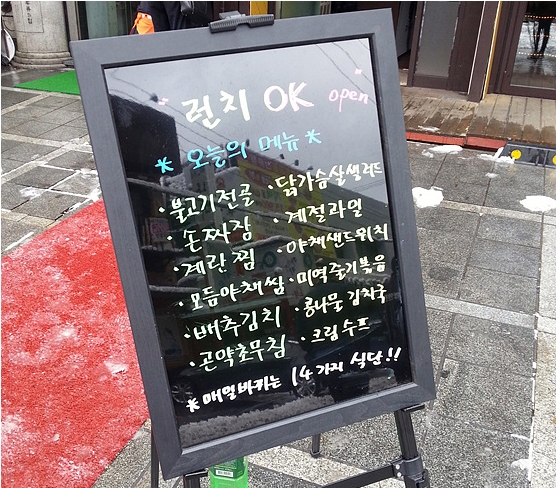 "런치 OK open"
* 오늘의 메뉴 *
· 불고기전골 · 닭가슴살샐러드
· 손짜장 · 계절과일
· 계란찜 · 야채샌드위치
· 모듬야채쌈 · 미역줄기볶음
· 배추김치 · 콩나물김치국
· 곤약초무침 · 크림수프
* 매일바뀌는 14가지 식단!!